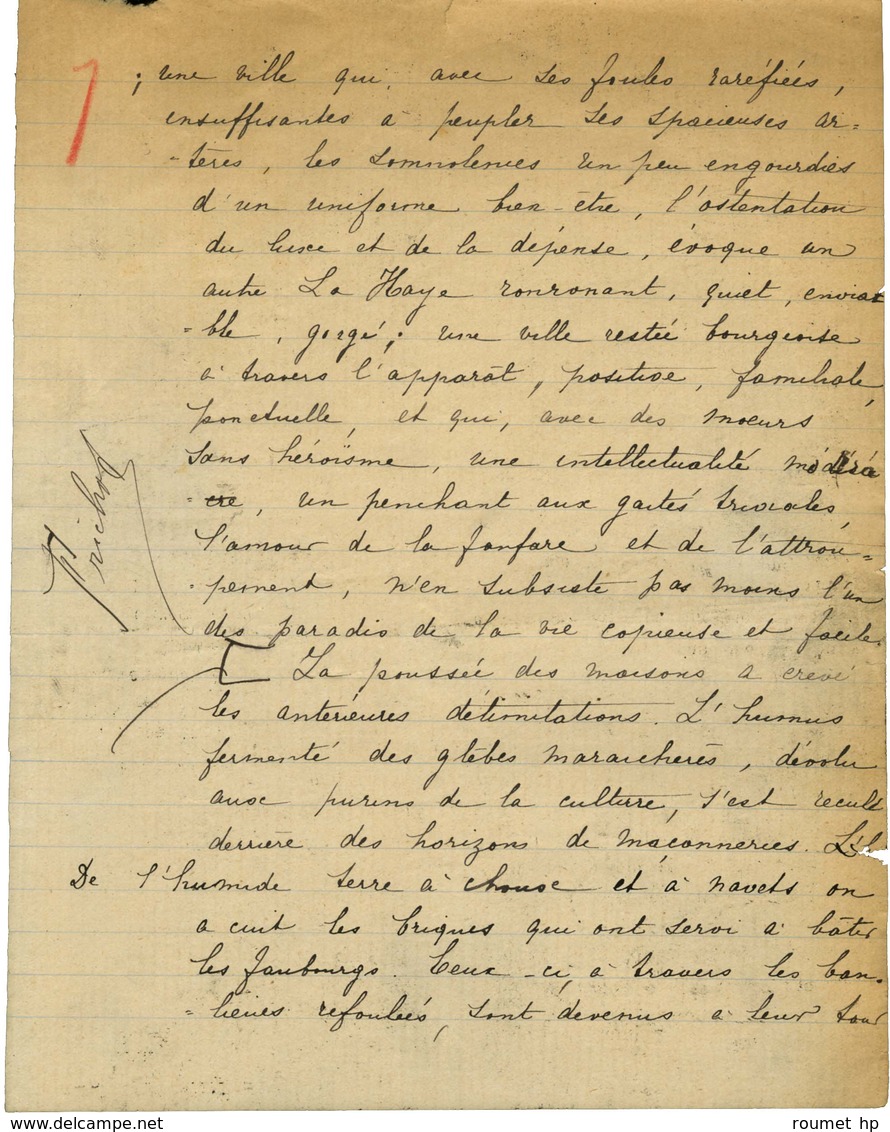 ; une ville qui, avec ses foules raréfiées,
insuffisantes à peupler ses spacieuses ar=
=tères, les somnolences un peu engourdies
d'un uniforme bien-être, l'ostentation
du luxe et de la dépense, évoque un
autre La Haye ronronant, quiet, envia
=ble, gorgé; une ville restée bourgeoise
à travers l'apparât, positive, familiale,
ponctuelle, et qui, avec des moeurs
sans héroïsme, une intellectualité
un penchant aux gaités triviales,
l'amour de la fanfare et de l'attrou=
=pement, n'en subsiste pas moins l'un
des paradis de la vie copieuse et facile.
[ La poussée des maisons a crevé
les antérieures délimitations. L'humus
fermenté des glèbes maraichères, dévolu
aux purins de la culture, s'est reculé
derrière des horizons de maçonneries.
De l'humide terre à choux et à navets on
a cuit les briques qui ont servi à bâtir
les faubourgs. Ceux-ci, à travers les ban=
=lieues refoulées, sont devenus à leur tour
roumet hp